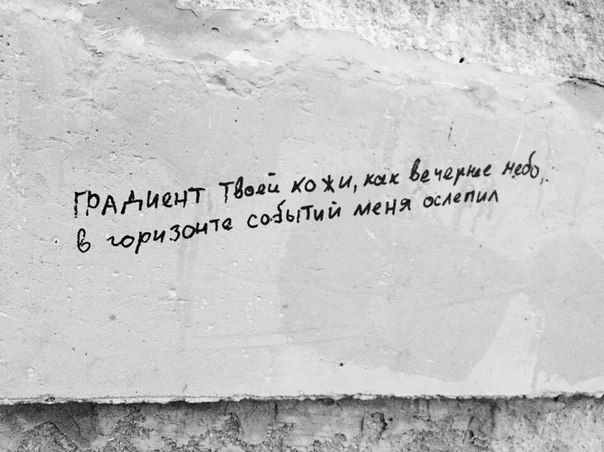 градиент твоей кожи, как вечерне небо,
в горизонте событий меня ослепил